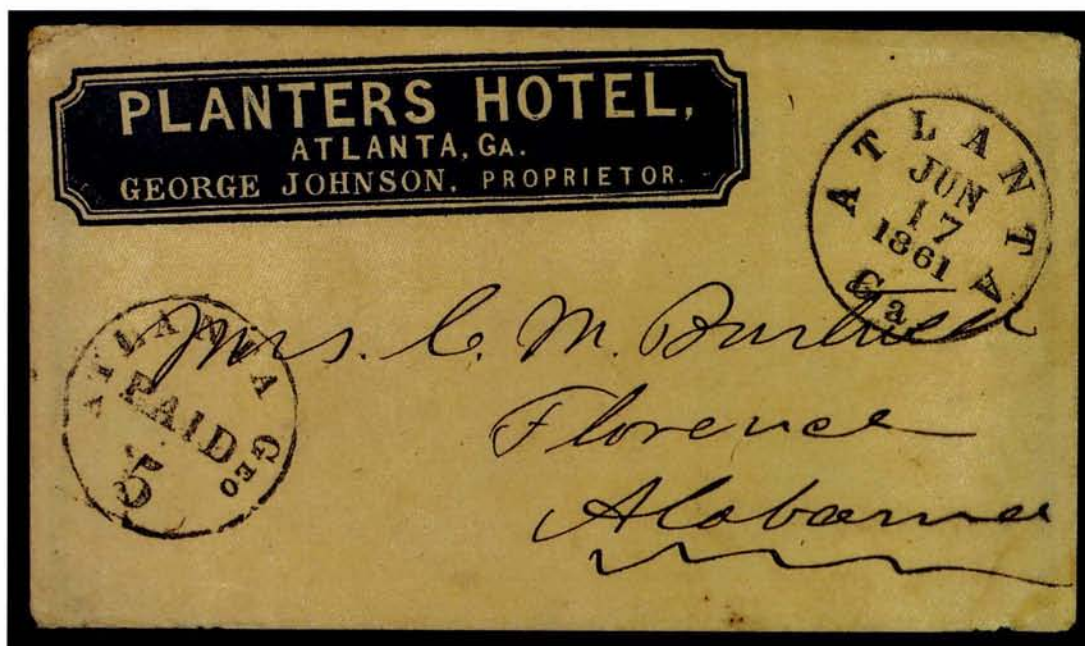 PLANTERS HOTEL,
ATLANTA, GA.
GEORGE JOHNSON, PROPRIETOR.
ATLANTA
JUN
17
1861
Ga
ATLANTA GEO
PAID
5
Mrs. C. M.
Florence
Alabama